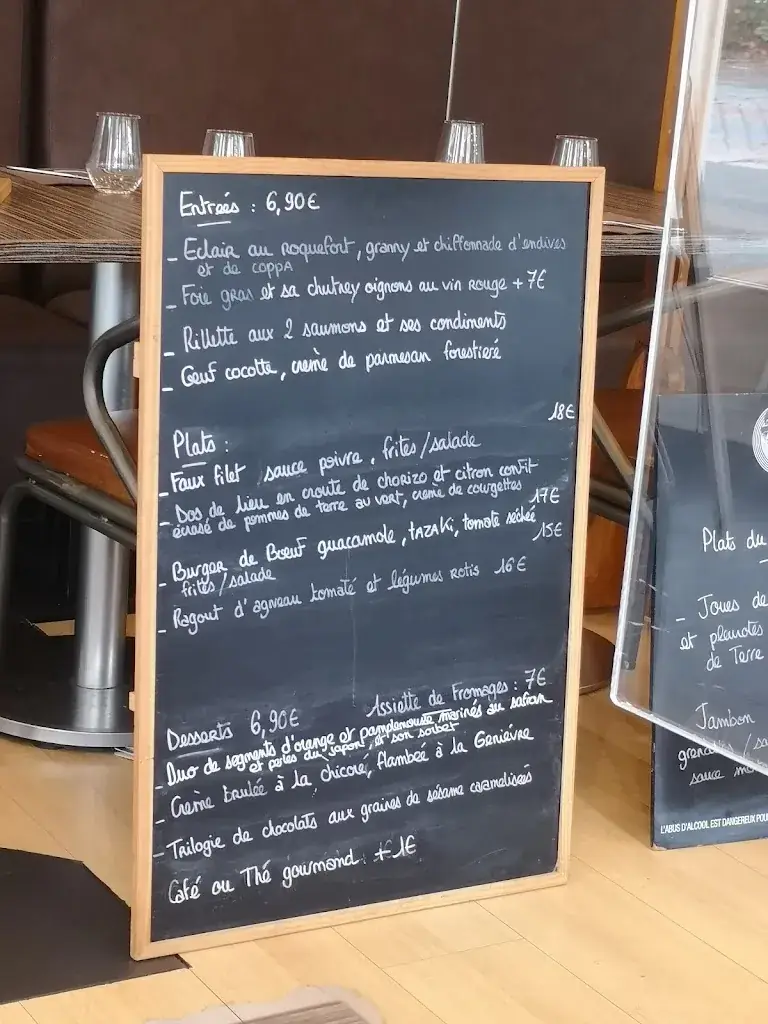 Entreés : 6,90€
- Eclair au roquefort, granny et chiffonnade d'endives
et de coppa
- Foie gras et sa chutney oignons au vin rouge + 7€
- Rillette aux 2 saumons et ses condiments
- Œuf cocotte, crème de parmesan forestière
18€
Plats :
- Faux filet sauce poivre, frites/salade
- Dos de lieu en croute de chorizo et citron confit
écrasé de pommes de terre au vert, crème de courgettes 17€
- Burger de Bœuf guacamole, TAZAKI, tomate séchée 15€
frites/salade
- Ragout d'agneau tomaté et légumes rotis 16€
Assiette de Fromages : 7€
Desserts 6,90€
- Duo de segments d'orange et pamplemousse marinés au safran
et perles du japon, et son sorbet
- Crème brulée à la chicoré, flambée à la Genièvre
- Trilogie de chocolats aux graines de sésame caramelisées
Café ou Thé gourmand + 1€
Plats du
- Joues de
et pleurotes
de Terre
Jambon
sauce
L'ABUS D'ALCOOL EST DANGEREUX POU